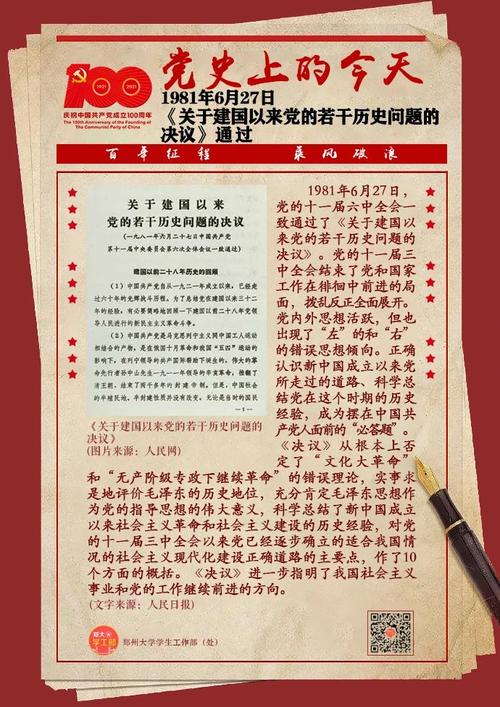 100
1921
2021
庆祝中国共产党成立100周年
The 100th Anniversary of the Founding of
The Communist Party of China
党史上的今天
1981年6月27日
《关于建国以来党的若干历史问题的
决议》通过
百年征程 乘风破浪
关于建国以来
党的若干历史问题的决议
(一九八一年六月二十七日中国共产党
第十一届中央委员会第六次全体会议一致通过)
建国以前二十八年历史的回顾
(1)中国共产党自从一九二一年成立以来,已经走
过六十年的光辉战斗历程。为了总结党在建国以来三十二
年的经验,有必要简略地回顾一下建国以前二十八年党领
导人民进行的新民主主义革命斗争。
(2)中国共产党是马克思列宁主义同中国工人运动
相结合的产物,是在俄国十月革命和我国“五四”运动的
影响下,在列宁领导的共产国际帮助下诞生的。伟大的革
命先行者孙中山先生一九一一年领导的辛亥革命,推翻了
清王朝,结束了两千多年的封建帝制。但是,中国社会
的半殖民地、半封建性质并没有改变。无论是当时的国民
—1—
《关于建国以来党的若干历史问题的
决议》
(图片来源:人民网)
1981年6月27日,
党的十一届六中全会一
致通过了《关于建国以
来党的若干历史问题的
决议》。党的十一届三
中全会结束了党和国家
工作在徘徊中前进的局
面,拨乱反正全面展开。
党内外思想活跃,但也
出现了“左”的和“右”
的错误思想倾向。正确
认识新中国成立以来党
所走过的道路、科学总
结党在这个时期的历史
经验,成为摆在中国共
产党人面前的“必答题”。
《决议》从根本上否
定了“文化大革命”
和“无产阶级专政下继续革命”的错误理论,实事求
是地评价毛泽东的历史地位,充分肯定毛泽东思想作
为党的指导思想的伟大意义,科学总结了新中国成立
以来社会主义革命和社会主义建设的历史经验,对党
的十一届三中全会以来党已经逐步确立的适合我国情
况的社会主义现代化建设正确道路的主要点,作了10
个方面的概括。《决议》进一步指明了我国社会主义
事业和党的工作继续前进的方向。
(文字来源:人民日报)
郑大
学工部
郑州大学学生工作部(处)